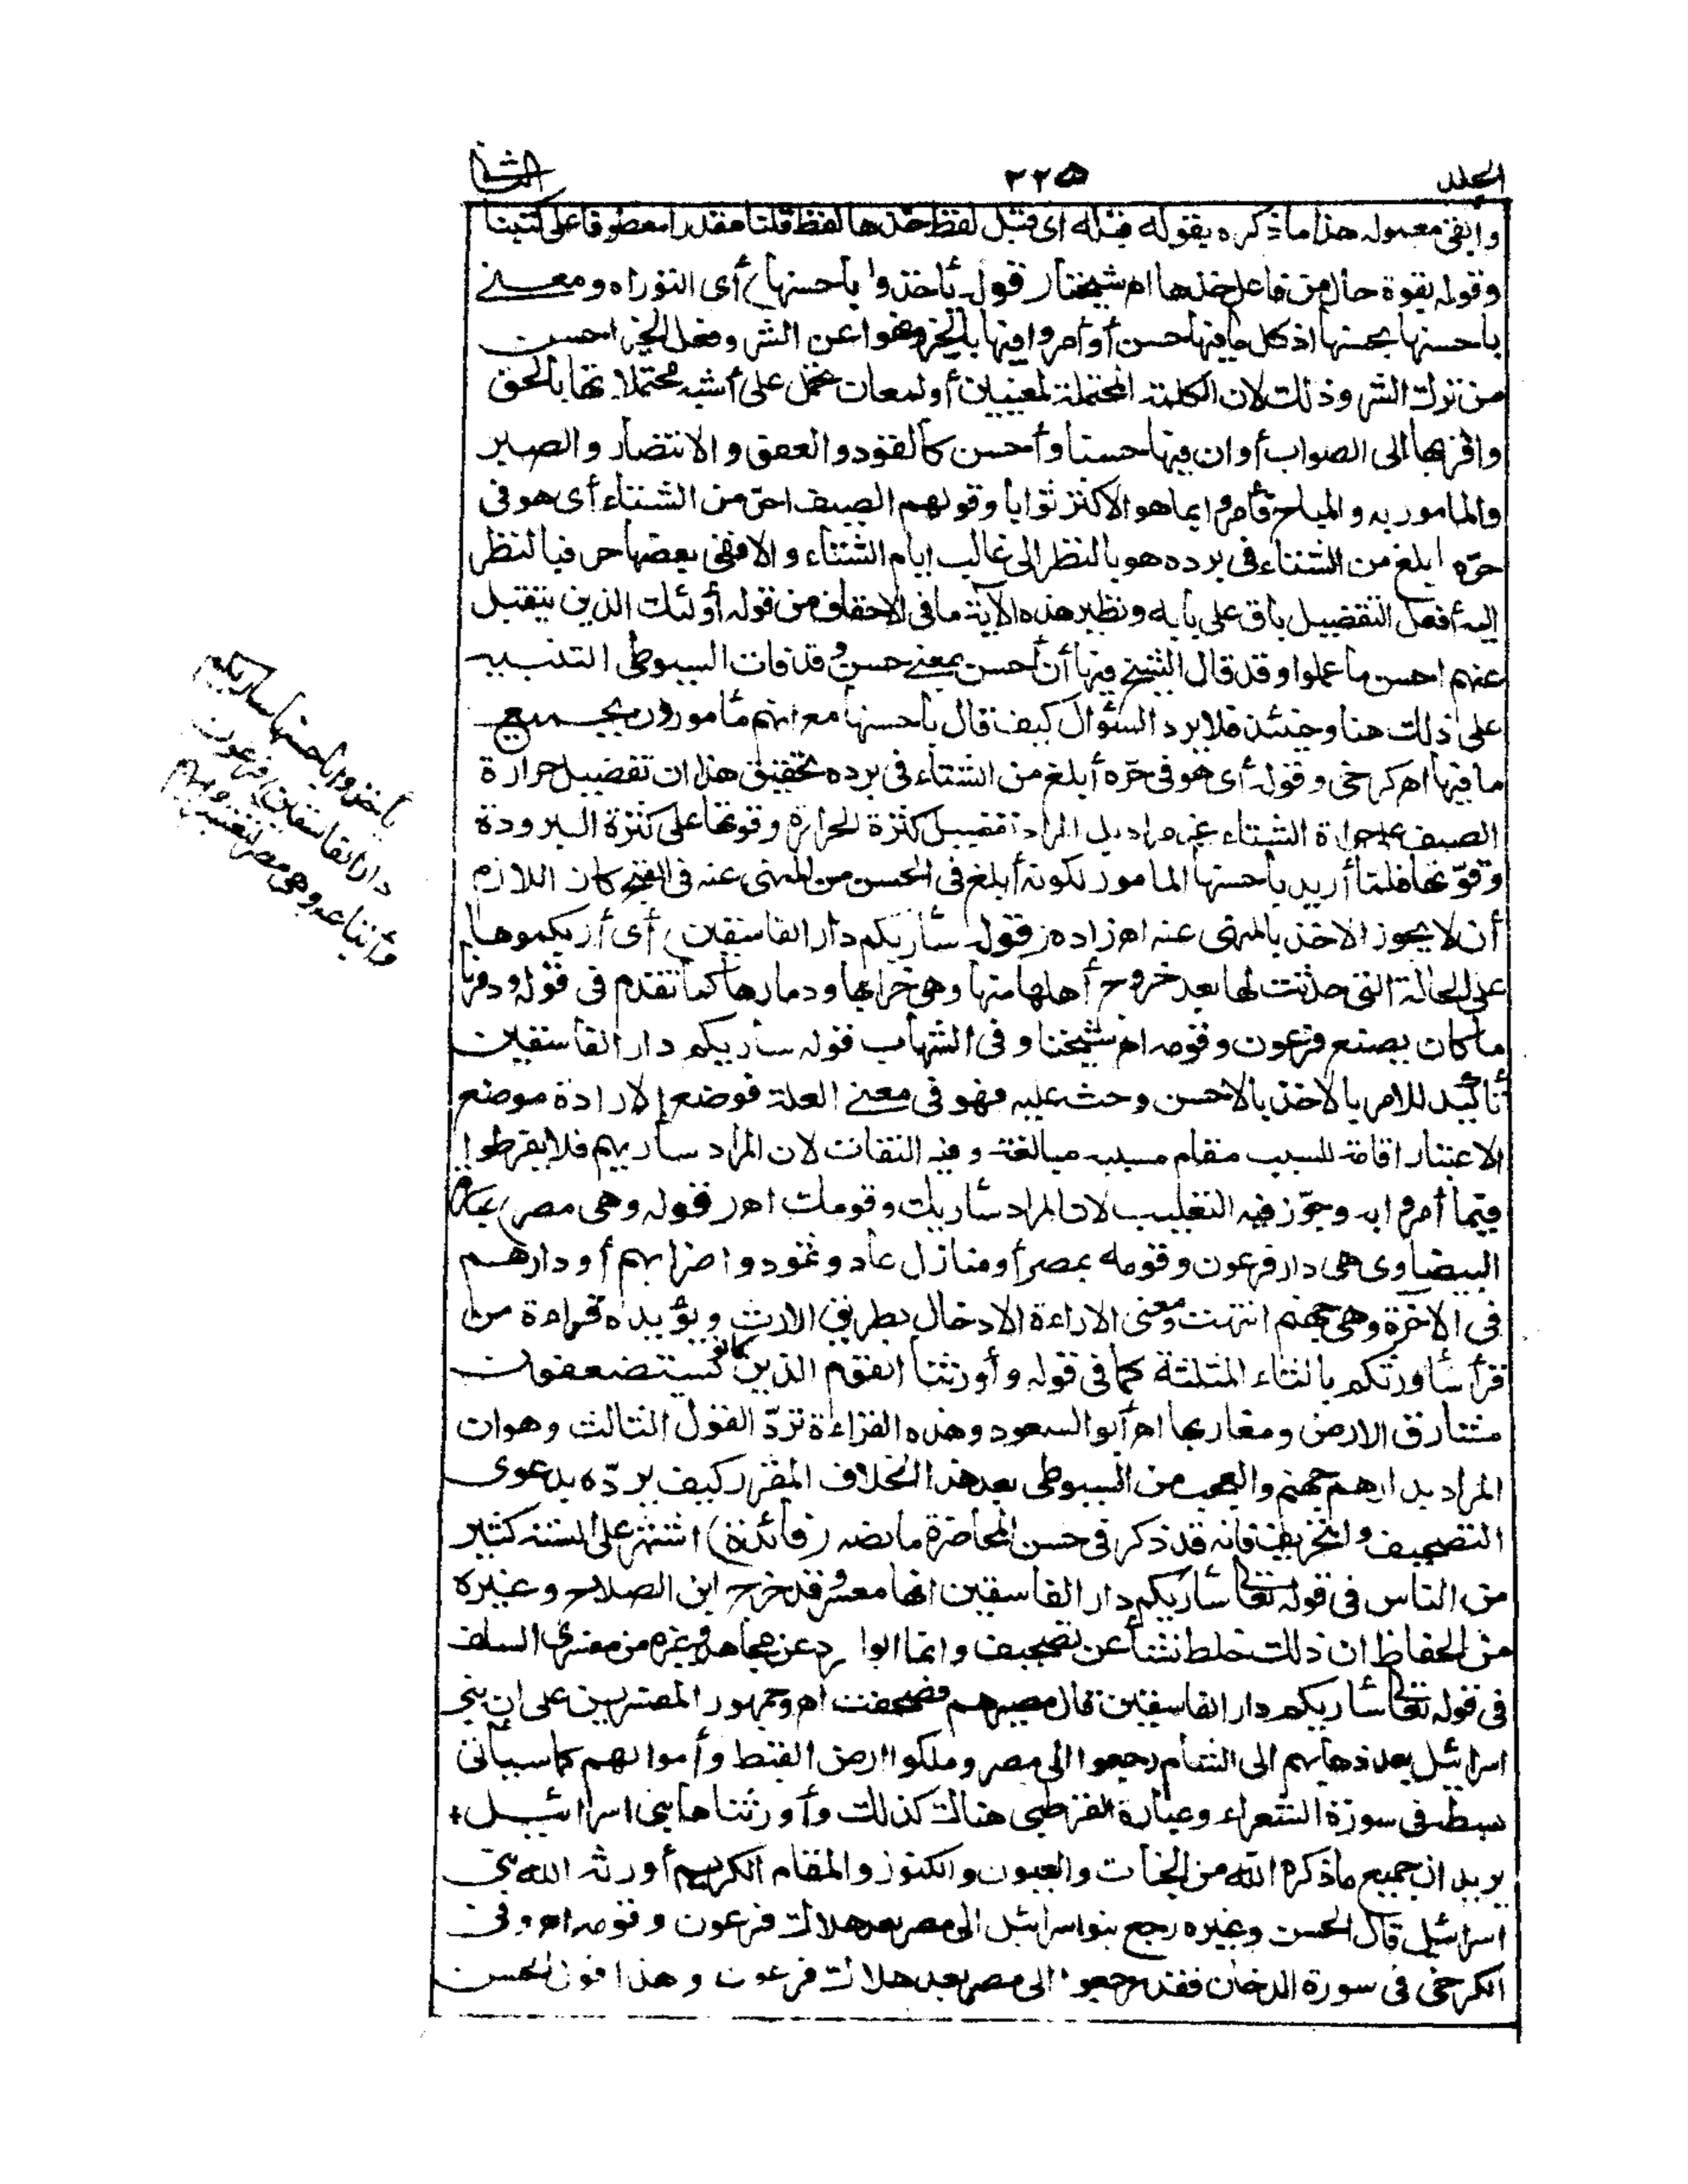 الجلد ٢٢٥ الثانى
وابقى معموله هذا ما ذكره بقوله قبله اى قبل لفظ خذها لفظ قلنا مقدرا معطوفا على كتبنا
وقوله بقوة حال من فاعل خذها اه شيخنا (قوله يأخذوا بأحسنها) أى التوراه ومعنى
باحسنها بحسنها اذ كل ما فيها حسن أو أمروا فيها بالخير ونهوا عن الشر وفعل الخير احسن
من ترك الشر وذلك لان الكلمة المحتملة لمعنيين أو لمعان تحمل على أشبه محتملاتها بالحق
واقربها الى الصواب أو ان فيها حسنا وأحسن كالقود والعفو والانتصار والصبر
والمامور به والمباح فأمروا بما هو الاكثر ثوابا وقولهم الصيف احر من الشتاء أى هو فى
حرّه ابلغ من الشتاء فى برده هو بالنظر الى غالب ايام الشتاء والا ففى بعضها حر فبالنظر
اليه أفعل التفضيل باق على بابه ونظير هذه الآية ما فى الاحقاف من قوله أولئك الذين يتقبل
عنهم احسن ما عملوا وقد قال الشيخ فيها أن أحسن بمعنى حسن وقد فات السيوطى التنبيه
على ذلك هنا وحينئذ فلا يرد السؤال كيف قال بأحسنها مع انهم مأمورون بجميع
ما فيها اه كرخى وقوله أى هو فى حرّه أبلغ من الشتاء فى برده تحقيق هذا ان تفضيل حرارة
الصيف على حرارة الشتاء غير مراد بل المراد تفضيل كثرة الحرارة وقوتها على كثرة البرودة
وقوّتها فلما أريد بأحسنها المامور لكونه أبلغ فى الحسن من المنهى عنه فى القبح كان اللازم
أن لا يجوز الاخذ بالمنهى عنه اه زاده (قوله سأريكم دار الفاسقين) أى أريكموها
على الحالة التى حدثت لها بعد خروج أهلها منها وهى خرابها ودمارها كما تقدم فى قوله ودمرنا
ما كان يصنع فرعون وقومه اه شيخنا وفى الشهاب قوله سأريكم دار الفاسقين
تأكيد للامر بالاخذ بالاحسن وحث عليه فهو فى معنى العلة فوضع الارادة موضع
الاعتبار اقامة للسبب مقام مسببه مبالغة وفيه التفات لان المراد سأريهم فلا يفرطوا
فيما أمروا به وجوّز فيه التغليب لان المراد سأريك وقومك اه (قوله وهى مصر) عبارة
البيضاوى هى دار فرعون وقومه بمصر أو منازل عاد وثمود واضرابهم أو دارهم
فى الآخرة وهى جهنم انتهت ومعنى الاراءة الادخال بطريق الارث ويؤيده قراءة من
قرأ سأورثكم بالثاء المثلثة كما فى قوله وأورثنا القوم الذين كانوا يستضعفون
مشارق الارض ومغاربها اه أبو السعود وهذه القراءة تردّ القول الثالث وهو ان
المراد بدارهم جهنم والعجب من السيوطى بعد هذا الخلاف المقرر كيف يردّه بدعوى
التصحيف والتحريف فانه قد ذكر فى حسن المحاضرة ما نصه (فائدة) اشتهر على ألسنة كثير
من الناس فى قوله تعالى سأريكم دار الفاسقين انها مصر وقد خرج ابن الصلاح وغيره
من الحفاظ ان ذلك غلط نشأ عن تصحيف وانما الوارد عن مجاهد وغيره من مفسرى السلف
فى قوله تعالى سأريكم دار الفاسقين قال مصيرهم فصحفت اه وجمهور المفسرين على ان بنى
اسرائيل بعد ذهابهم الى الشام رجعوا الى مصر وملكوا ارض القبط وأموالهم كما سيأتى
بسطه فى سورة الشعراء وعبارة القرطبى هناك كذلك وأورثناها بنى اسرائيل
يريد ان جميع ما ذكره الله من الجنات والعيون والكنوز والمقام الكريم أورثه الله بنى
اسرائيل قال الحسن وغيره رجع بنو اسرائيل الى مصر بعد هلاك فرعون وقومه اه وفى
الكرخى فى سورة الدخان فقد رجعوا الى مصر بعد هلاك فرعون وهذا قول الحسن
يأخذوا بأحسنها سأريكم
دار الفاسقين) فرعون
وأتباعه وهى مصر لتعتبروا بهم